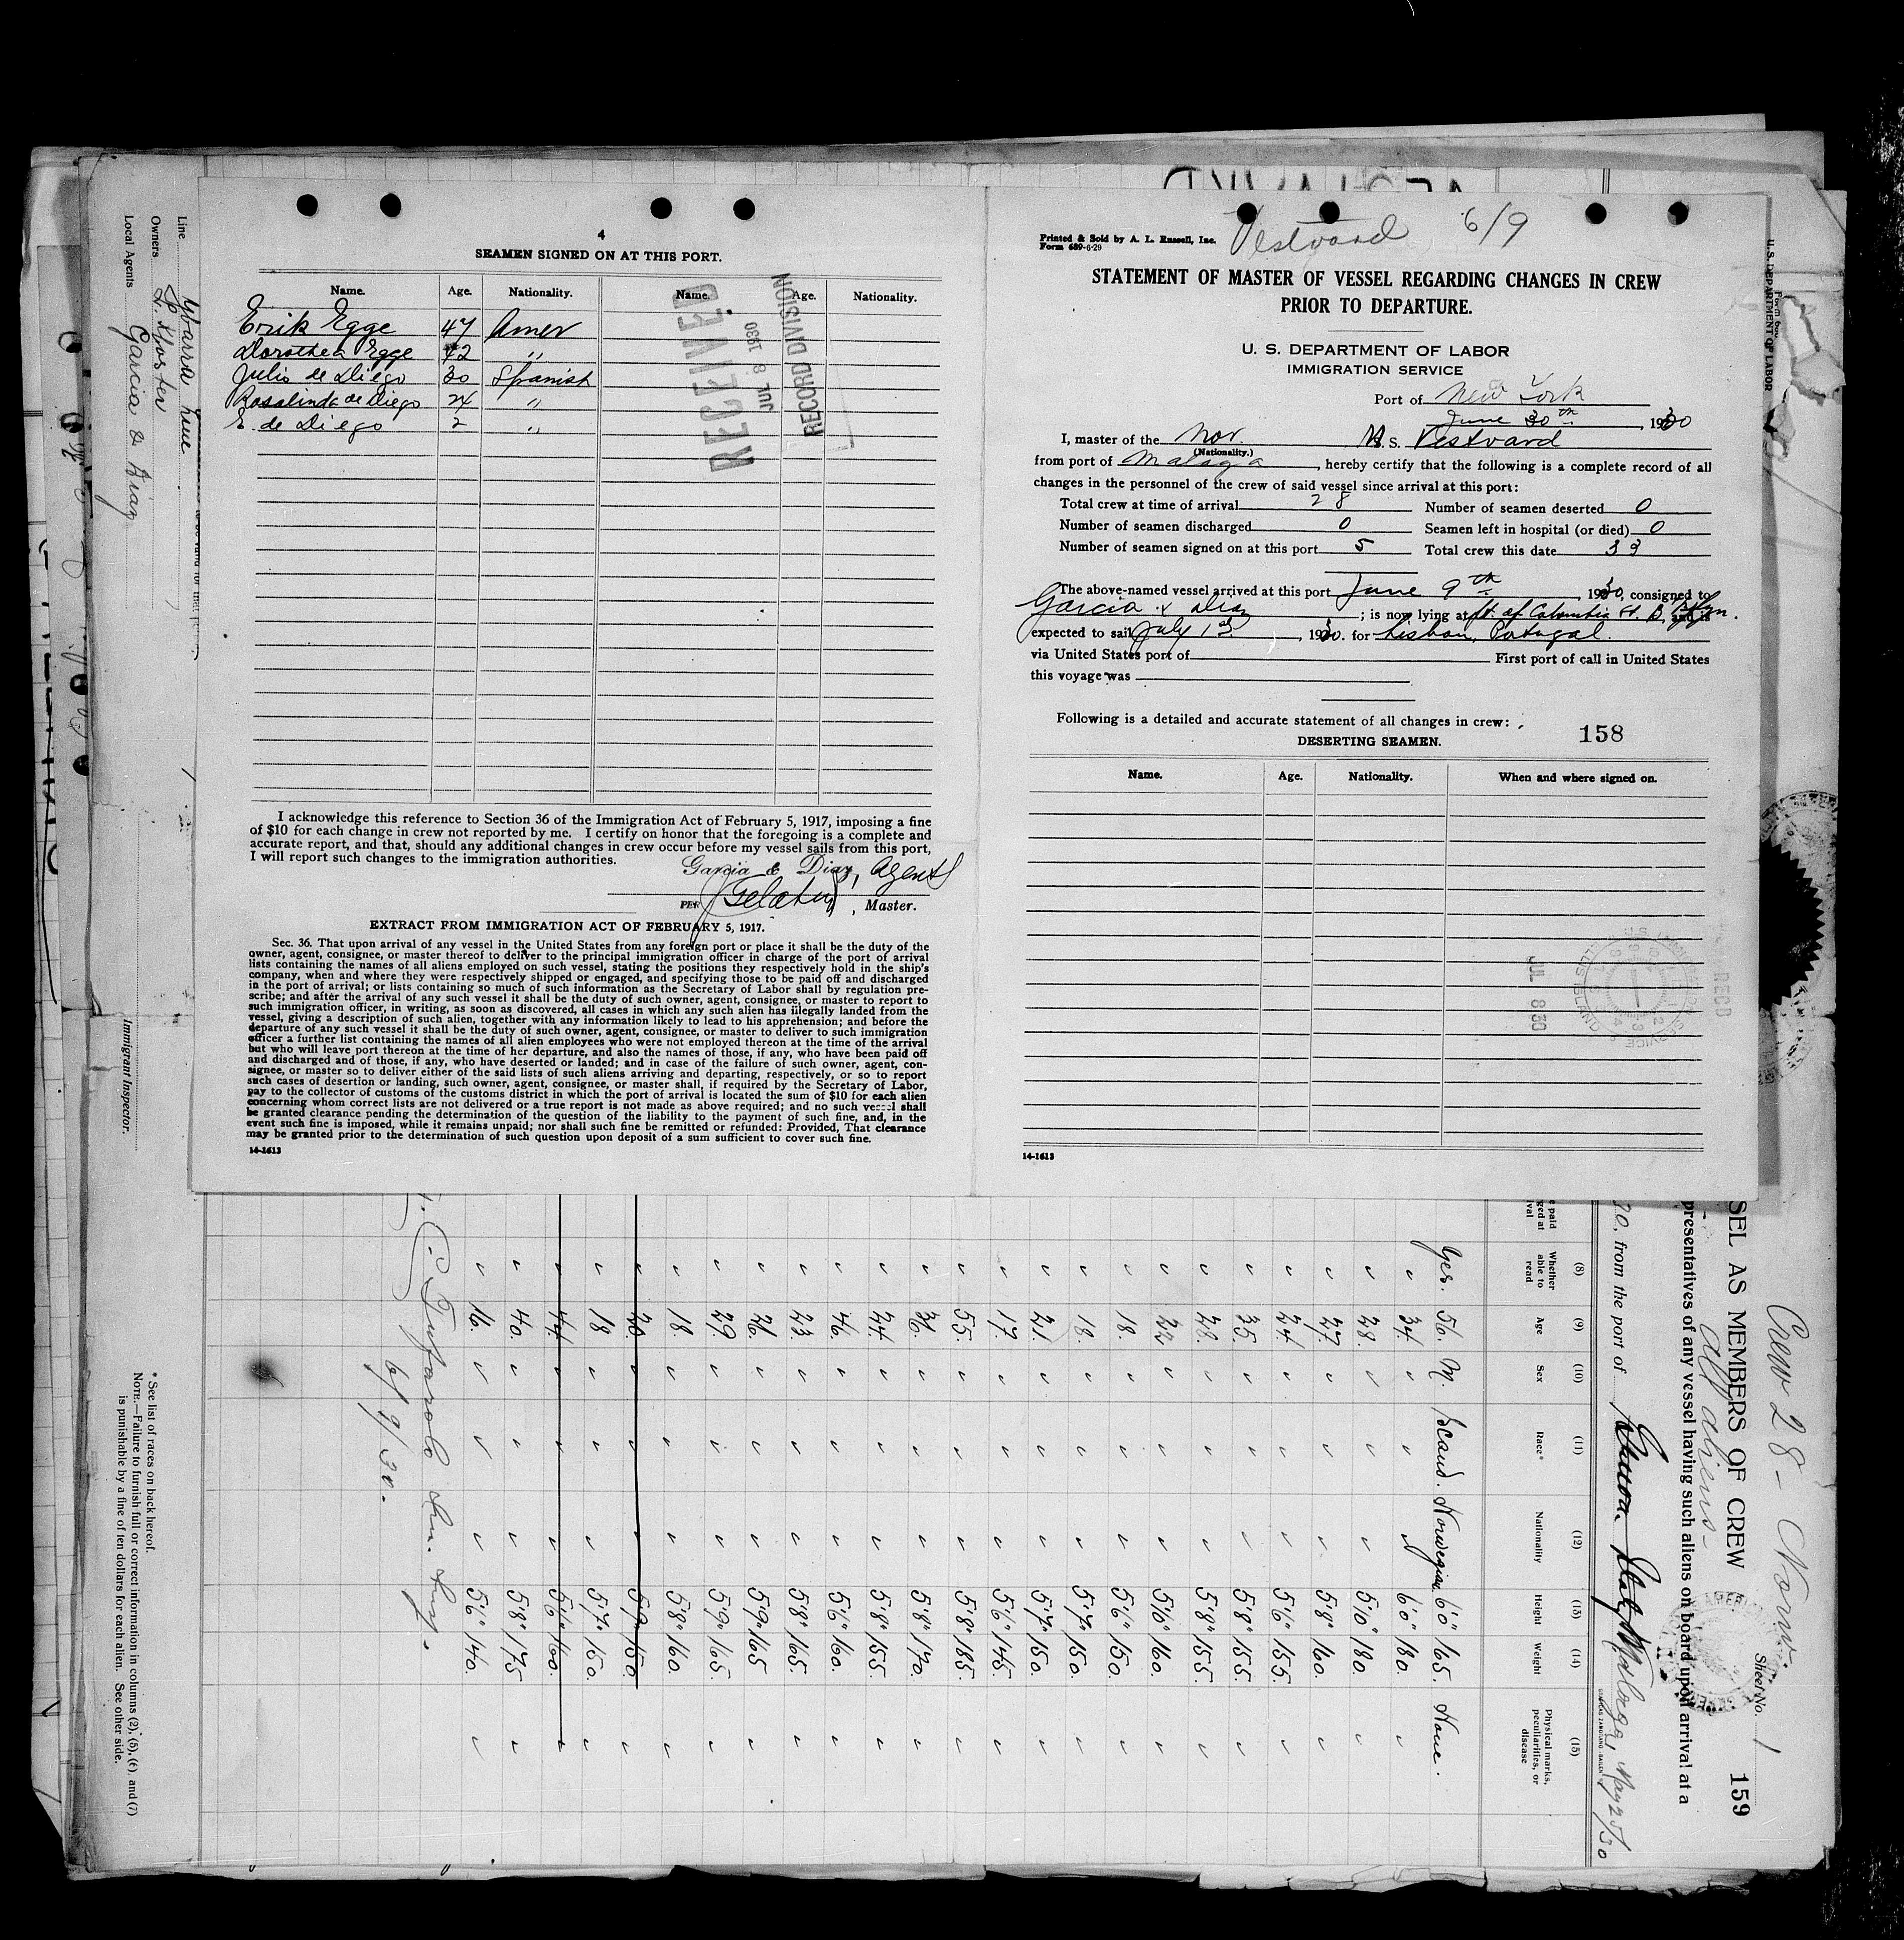 4
SEAMEN SIGNED ON AT THIS PORT.
Name. Age. Nationality. Name. Age. Nationality.
Erik Egge 47 Amer
Dorothea Egge 42 "
Julio de Diego 30 Spanish
Rosalinda de Diego 24 "
E. de Diego 2 "
RECEIVED
JUL 8 1930
RECORD DIVISION
I acknowledge this reference to Section 36 of the Immigration Act of February 5, 1917, imposing a fine
of $10 for each change in crew not reported by me. I certify on honor that the foregoing is a complete and
accurate report, and that, should any additional changes in crew occur before my vessel sails from this port,
I will report such changes to the immigration authorities.
Garcia & Diaz, Agents
PER , Master.
EXTRACT FROM IMMIGRATION ACT OF FEBRUARY 5, 1917.
Sec. 36. That upon arrival of any vessel in the United States from any foreign port or place it shall be the duty of the
owner, agent, consignee, or master thereof to deliver to the principal immigration officer in charge of the port of arrival
lists containing the names of all aliens employed on such vessel, stating the positions they respectively hold in the ship's
company, when and where they were respectively shipped or engaged, and specifying those to be paid off and discharged
in the port of arrival; or lists containing so much of such information as the Secretary of Labor shall by regulation pre-
scribe; and after the arrival of any such vessel it shall be the duty of such owner, agent, consignee, or master to report to
such immigration officer, in writing, as soon as discovered, all cases in which any such alien has illegally landed from the
vessel, giving a description of such alien, together with any information likely to lead to his apprehension; and before the
departure of any such vessel it shall be the duty of such owner, agent, consignee, or master to deliver to such immigration
officer a further list containing the names of all alien employees who were not employed thereon at the time of the arrival
but who will leave port thereon at the time of her departure, and also the names of those, if any, who have been paid off
and discharged and of those, if any, who have deserted or landed; and in case of the failure of such owner, agent, con-
signee, or master so to deliver either of the said lists of such aliens arriving and departing, respectively, or so to report
such cases of desertion or landing, such owner, agent, consignee, or master shall, if required by the Secretary of Labor,
pay to the collector of customs of the customs district in which the port of arrival is located the sum of $10 for each alien
concerning whom correct lists are not delivered or a true report is not made as above required; and no such vessel shall
be granted clearance pending the determination of the question of the liability to the payment of such fine, and, in the
event such fine is imposed, while it remains unpaid; nor shall such fine be remitted or refunded: Provided, That clearance
may be granted prior to the determination of such question upon deposit of a sum sufficient to cover such fine.
14-1613
Printed & Sold by A. L. Russell, Inc.
Form 689-6-29
Vestvard 6/9
STATEMENT OF MASTER OF VESSEL REGARDING CHANGES IN CREW
PRIOR TO DEPARTURE.
U. S. DEPARTMENT OF LABOR
IMMIGRATION SERVICE
Port of New York
June 30th, 1930
I, master of the Nor. M. S. Vestvard
(Nationality.)
from port of Malaga, hereby certify that the following is a complete record of all
changes in the personnel of the crew of said vessel since arrival at this port:
Total crew at time of arrival 28 Number of seamen deserted 0
Number of seamen discharged 0 Seamen left in hospital (or died) 0
Number of seamen signed on at this port 5 Total crew this date 33
The above-named vessel arrived at this port June 9th, 1930, consigned to
Garcia & Diaz; is now lying at ft. of Columbia St. Bklyn. and is
expected to sail July 1st, 1930. for Lisbon, Portugal.
via United States port of First port of call in United States
this voyage was
Following is a detailed and accurate statement of all changes in crew:
158
DESERTING SEAMEN.
Name. Age. Nationality. When and where signed on.
JUL 8 30
RECD
14-1613
Line Ybarra Line
Owners
Local Agents Garcia & Diaz
Immigrant Inspector.
* See list of races on back hereof.
NOTE.—Failure to furnish full or correct information in columns (2), (5), (6), and (7)
is punishable by a fine of ten dollars for each alien. See other side.
U. S. DEPARTMENT OF LABOR
Crew 28 - Norw.
all aliens -
Sheet No. 1
159
SEL AS MEMBERS OF CREW
presentatives of any vessel having such aliens on board upon arrival at a
from the port of Malaga, May 25/30
(8) (9) (10) (11) (12) (13) (14) (15)
Whether able to read Age Sex Race* Nationality Height Weight Physical marks, peculiarities, or disease
Yes. 56. M. Scand. Norwegian 6'0" 165. None.
" 34. " " " 6'0" 180. "
" 28. " " " 5'10" 180. "
" 27. " " " 5'8" 160. "
" 24. " " " 5'6" 155. "
" 35. " " " 5'8" 155. "
" 28. " " " 5'8" 155. "
" 22. " " " 5'10" 160. "
" 18. " " " 5'6" 150. "
" 18. " " " 5'7" 150. "
" 21. " " " 5'7" 150. "
" 17. " " " 5'6" 145. "
" 55. " " " 5'8" 185. "
" 36. " " " 5'8" 170. "
" 24. " " " 5'8" 155. "
" 46. " " " 5'6" 160. "
" 23. " " " 5'8" 165. "
" 26. " " " 5'9" 165 "
" 29. " " " 5'9" 165. "
" 18. " " " 5'8" 160. "
" 20. " " " 5'9" 150 "
" 18 " " " 5'7" 150. "
" 44. " " " 5'6" 160. "
" 40. " " " 5'8" 175 "
" 16. " " " 5'6" 140. "
6/9/30.